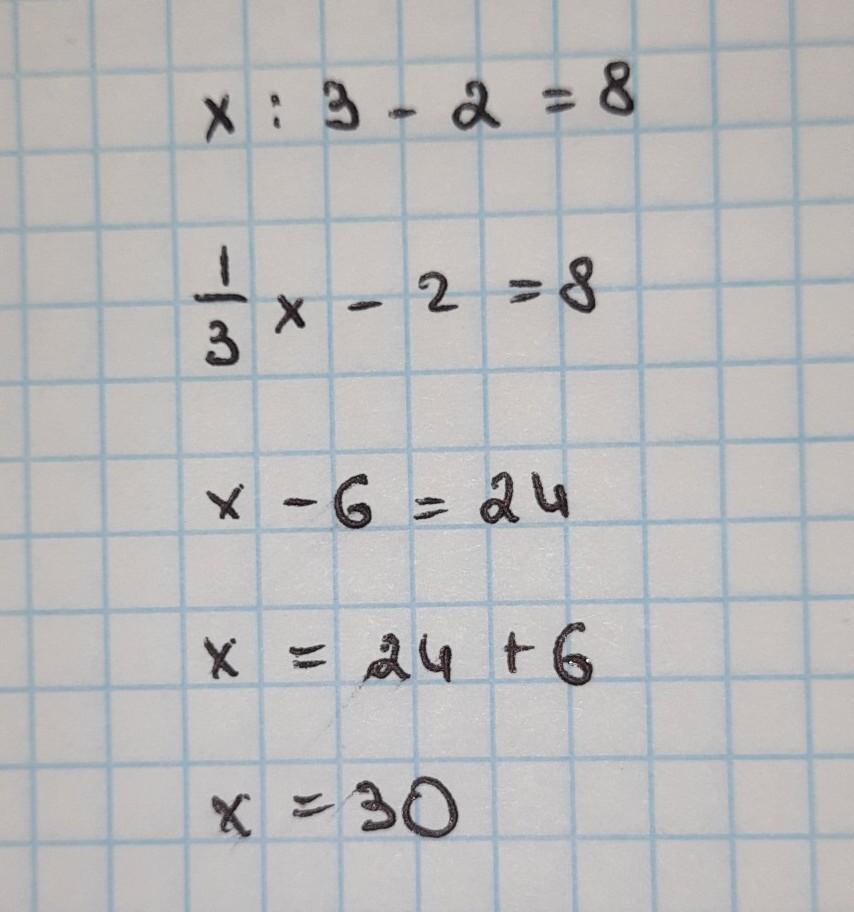 x : 3 - 2 = 8
1/3 x - 2 = 8
x - 6 = 24
x = 24 + 6
x = 30